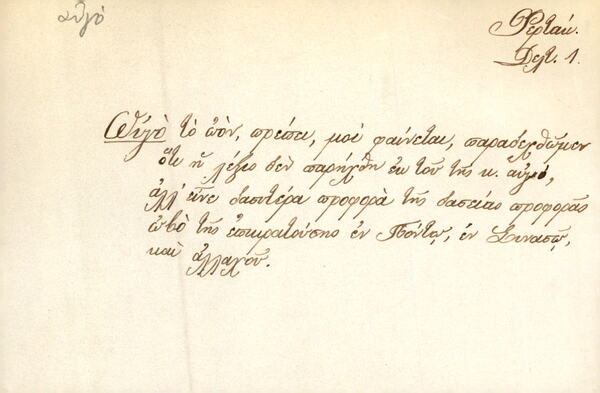 αὐγό
Φερτάκ.
Δελτ. 1.
Ὠβγὸ τὸ ὠὸν, πρέπει, μοὶ φαίνεται, παραδεχθῶμεν
ὅτι ἡ λέξις δὲν παρήχθη ἐκ τοῦ τῆς κ. αὐγό,
ἀλλ' εἶνε δασυτέρα προφορὰ τῆς δασείας προφορᾶς
ὠβὸ τῆς ἐπικρατούσης ἐν Πόντῳ, ἐν Σινασῷ,
καὶ ἀλλαχοῦ.